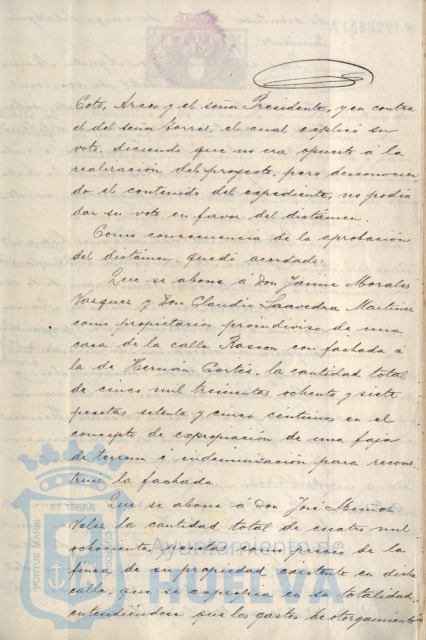 Coto, Arcos y el señor Presidente, y en contra
el del señor Torres, el cual explicó su
voto, diciendo que no era opuesto á la
realización del proyecto, pero desconocien
do el contenido del expediente, no podía
dar su voto en favor del dictámen.
Como consecuencia de la aprobación
del dictámen quedó acordado:
Que se abone á Don Jaime Morales
Vasquez y Don Claudio Saavedra Martinez
como propietarios proindiviso de una
casa de la calle Rascon con fachada á
la de Hernán Cortés, la cantidad total
de cinco mil trescientas ochenta y siete
pesetas setenta y cinco céntimos en el
concepto de expropiación de una faja
de terreno é indemnización para recons-
truir la fachada.
Que se abone á Don José Muñoz
Velez la cantidad total de cuatro mil
ochocientas pesetas como precio de la
finca de su propiedad existente en dicha
calle, que se expropia en su totalidad,
entendiéndose que los gastos de otorgamiento
PORTUS MARIS ET TERRAE CUSTODIA
Ayuntamiento de
HUELVA